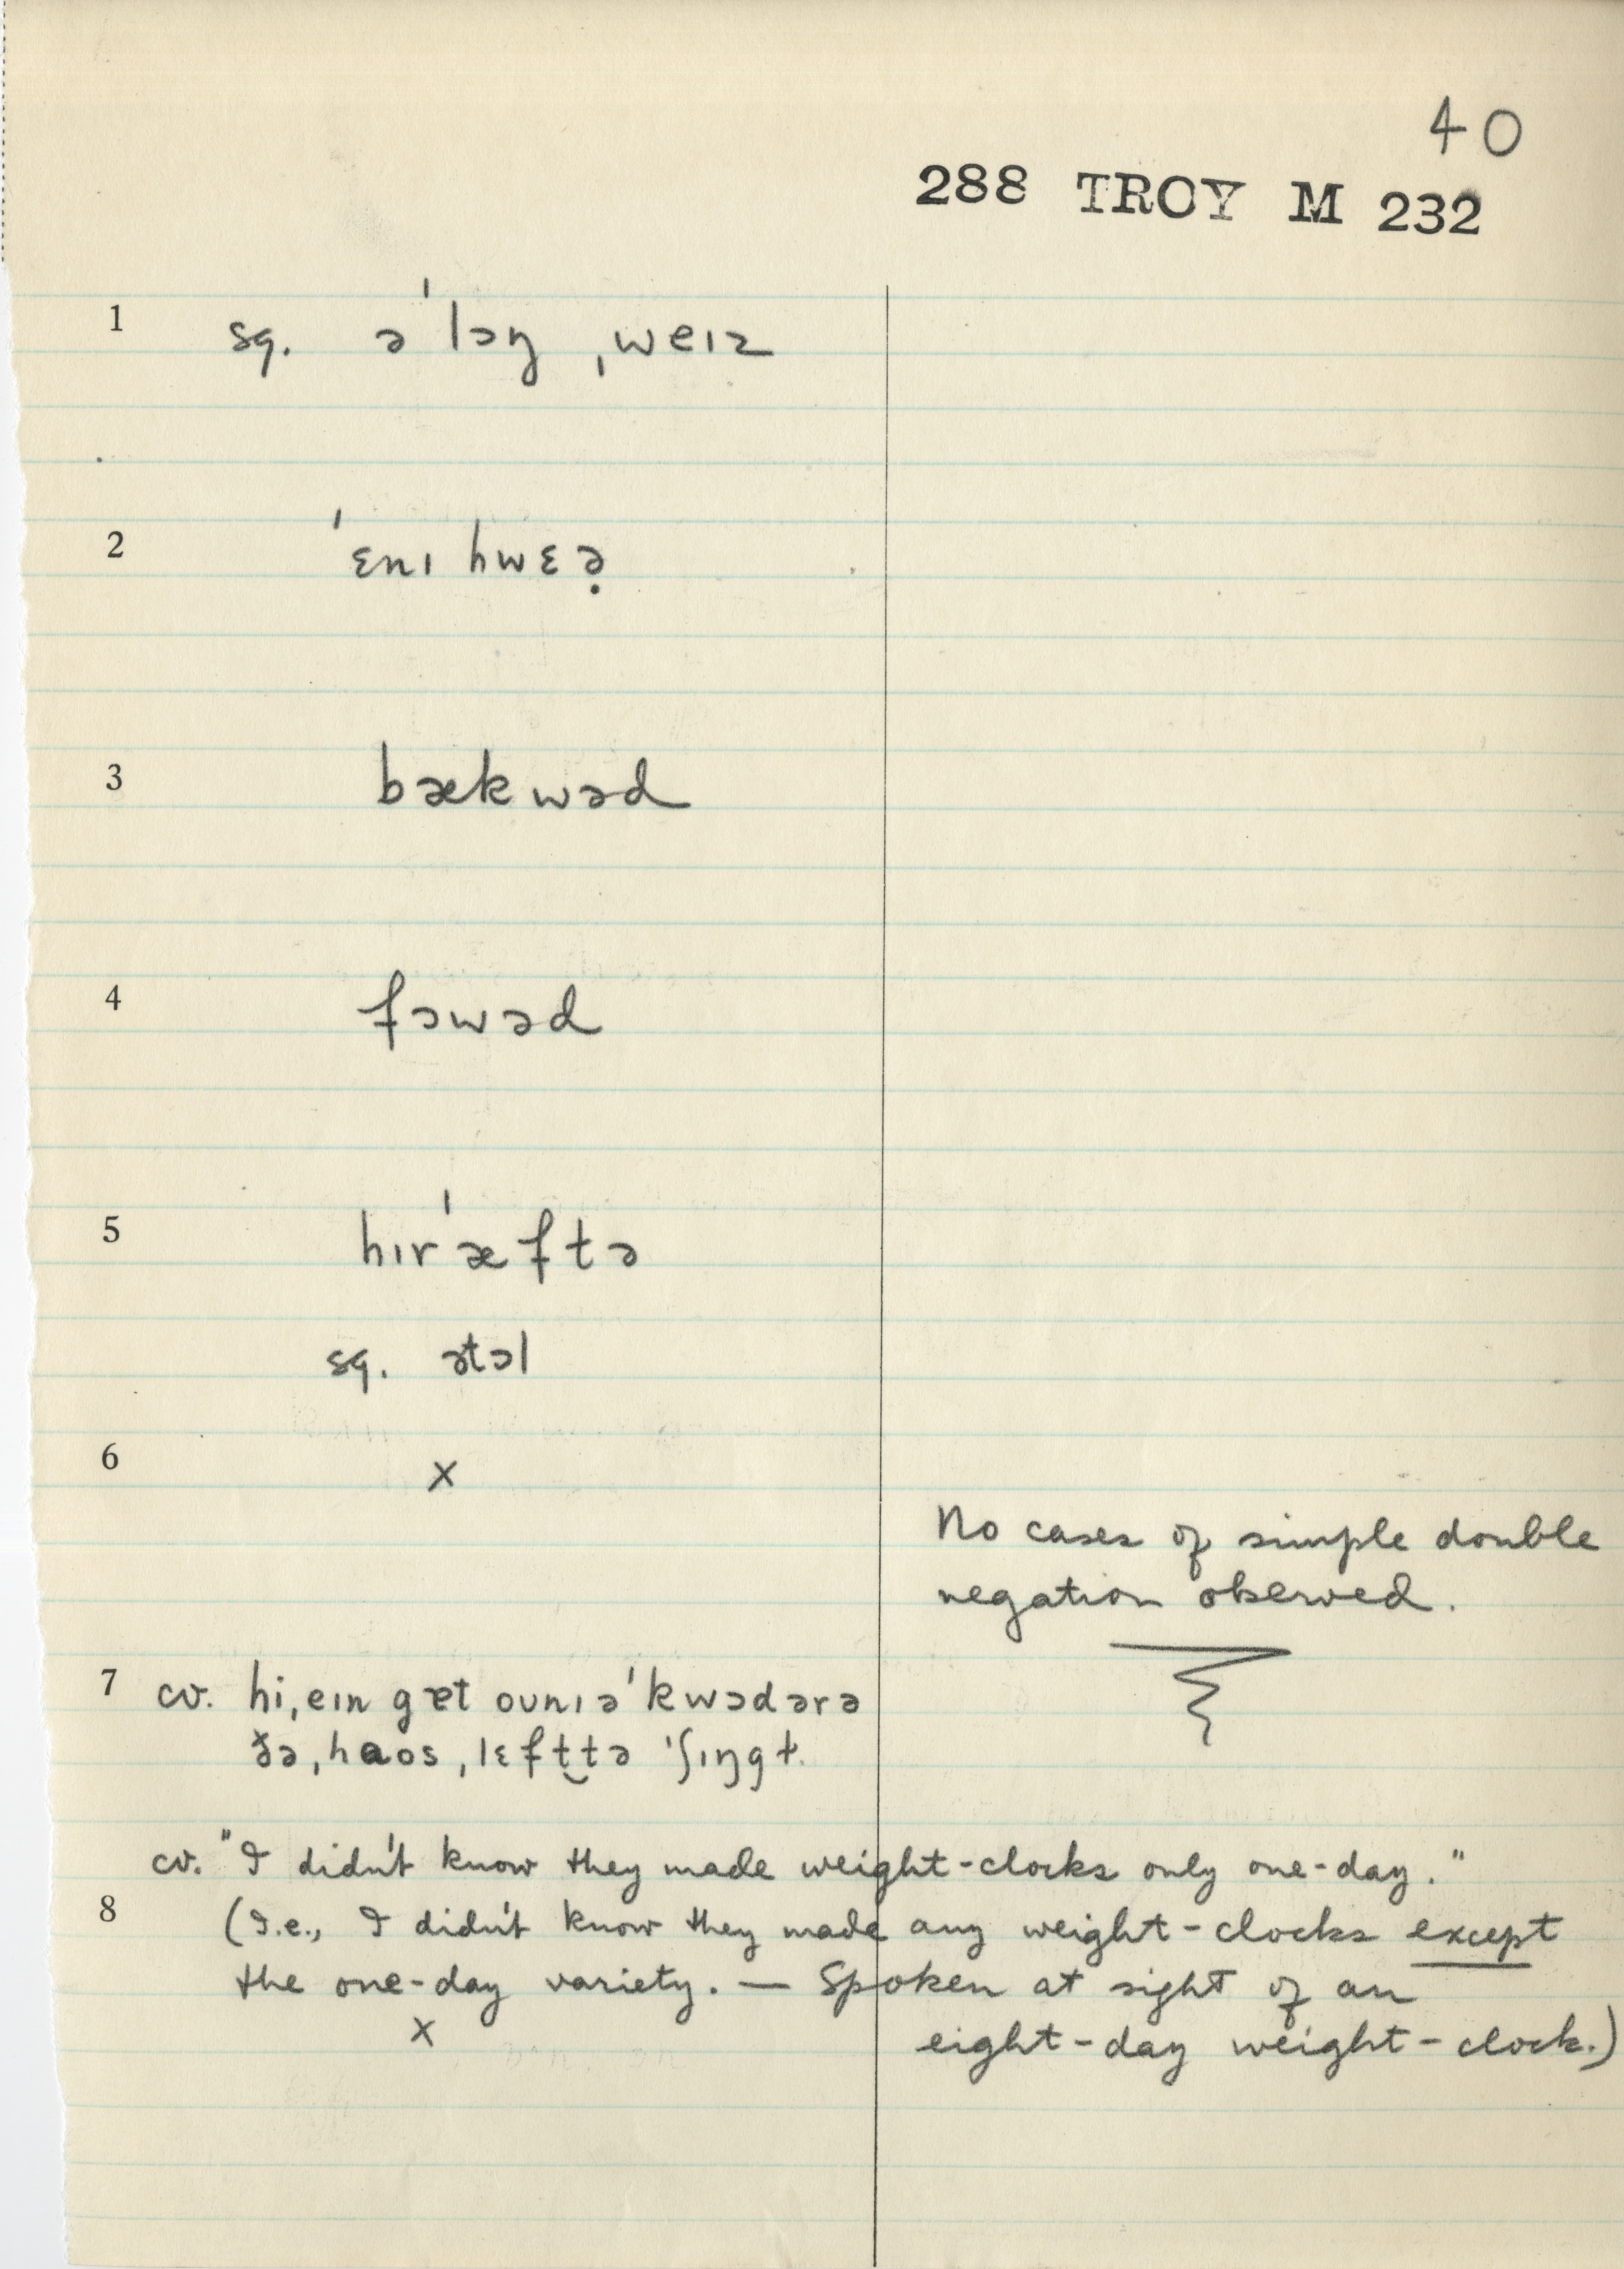 40
288 TROY M 232
1 sq. əˈlɔŋ ˌweɪz
2 ˈɛnɪ hwɛə̣
3 bækwəd
4 fɔwəd
5 hɪrˈæftə
sq. ətɔl
6 x
No cases of simple double
negation observed.
7 cv. hi,eɪn gɐt oʊnɪəˈkwɔdərə
ðə,haos,lɛft‿tə ˈʃɪŋgḷ
cv. "I didn't know they made weight-clocks only one-day."
8 (I.e., I didn't know they made any weight-clocks except
the one-day variety. — Spoken at sight of an
x eight-day weight-clock.)